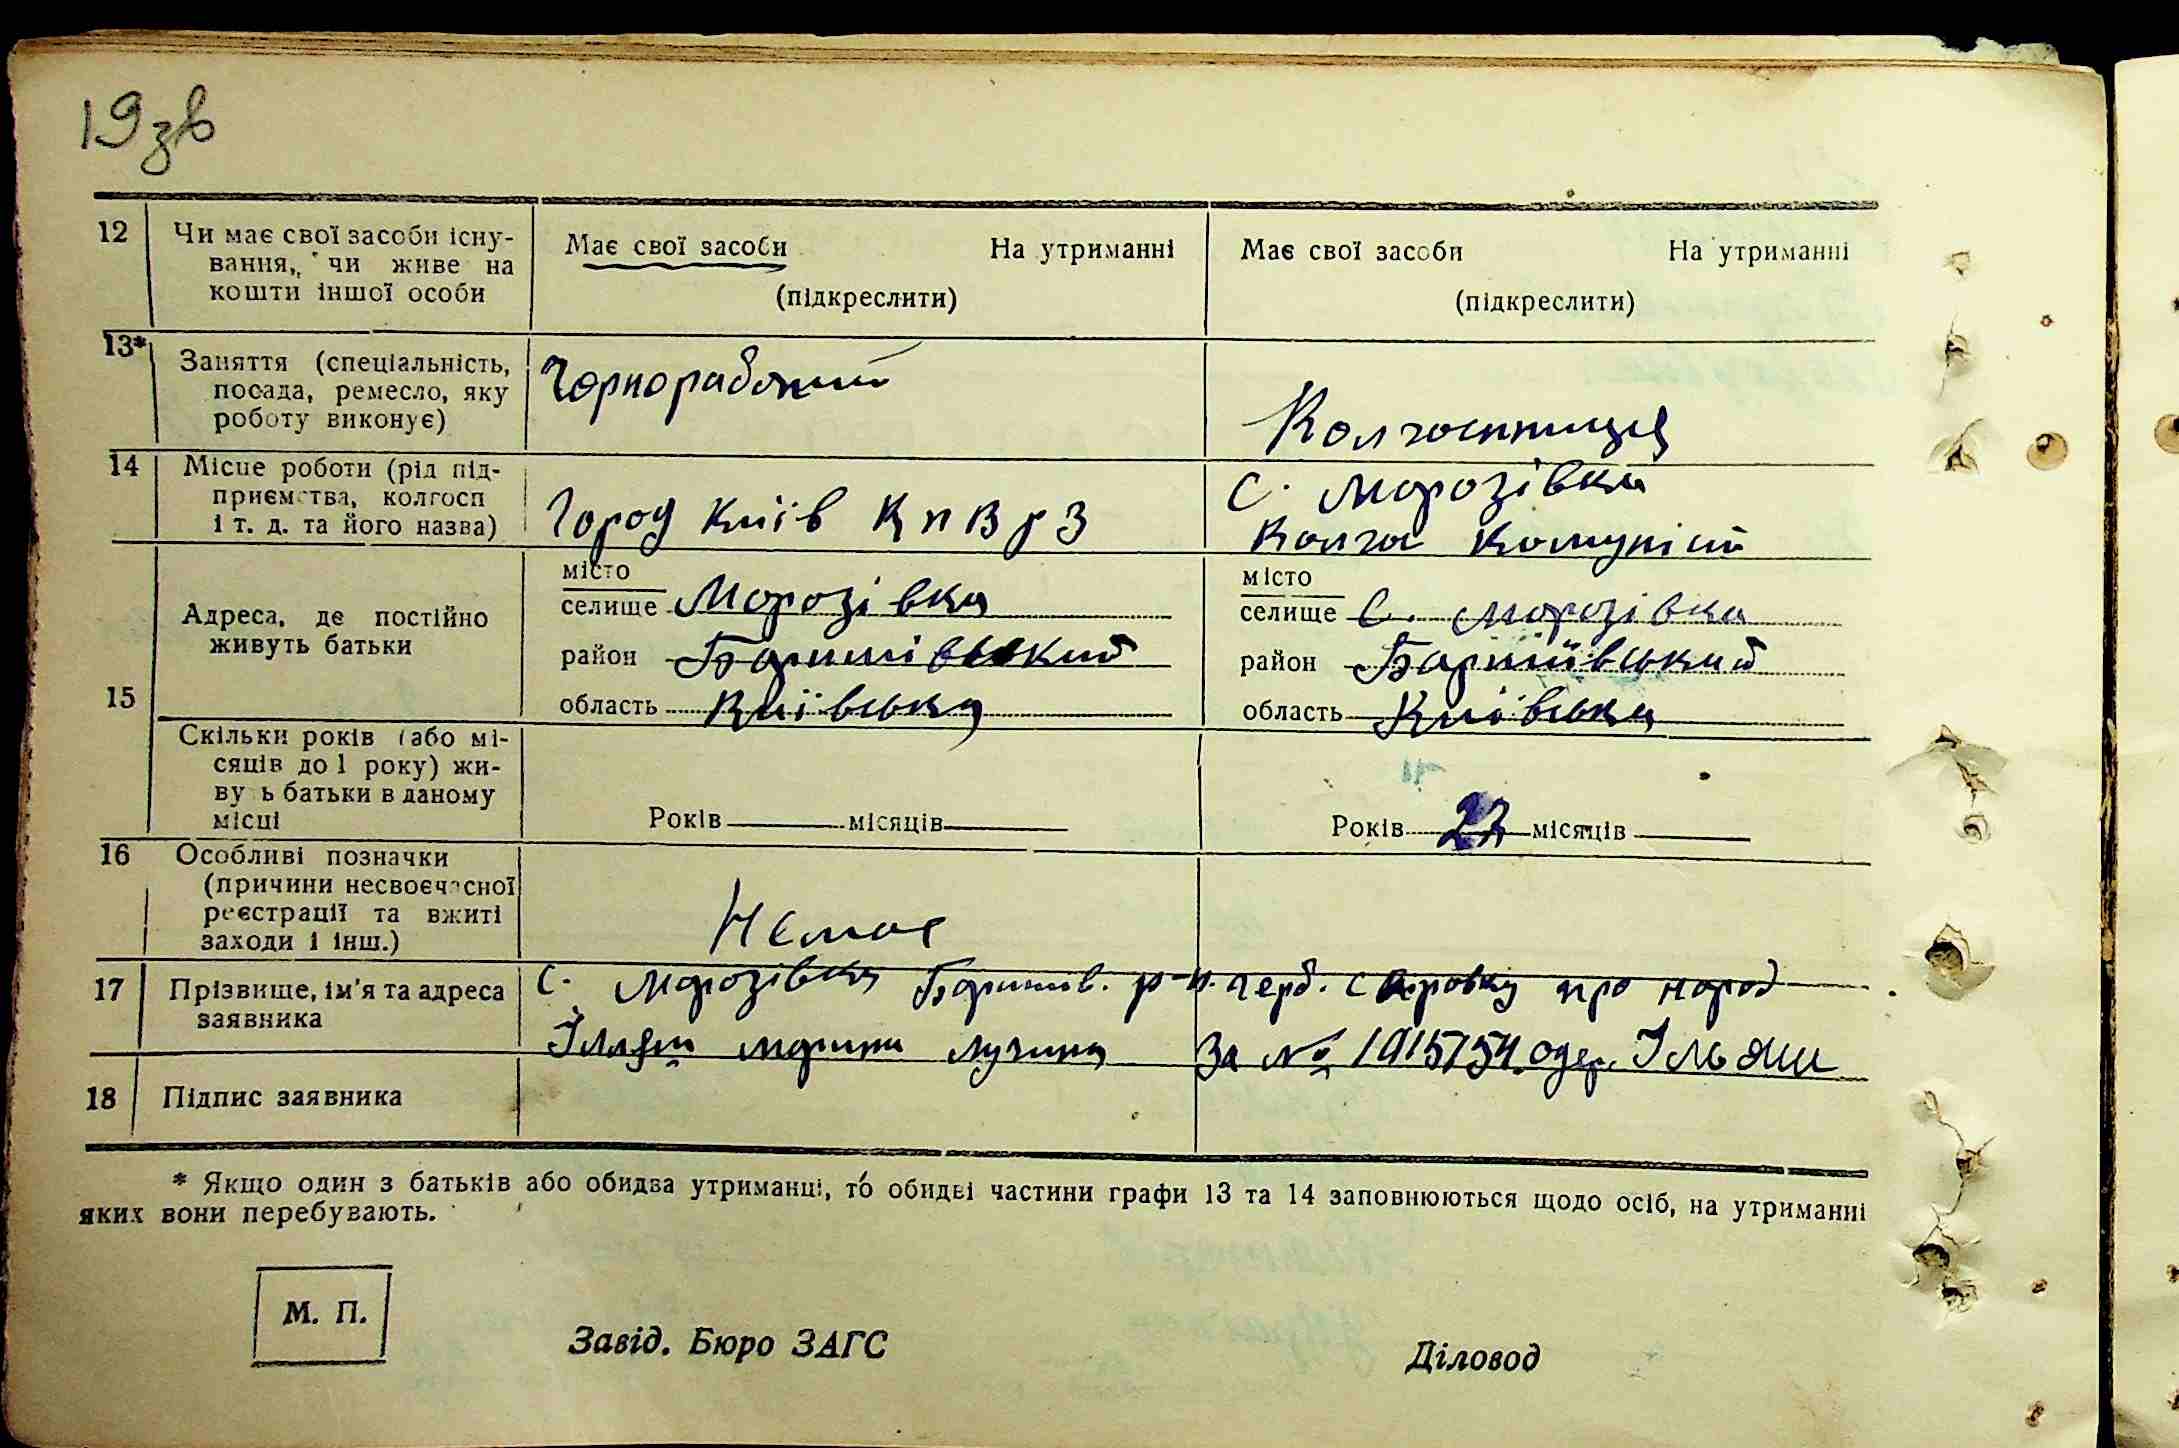 19зв
12 Чи має свої засоби існу-
вання, чи живе на
кошти іншої особи
Має свої засоби На утриманні
(підкреслити)
Має свої засоби На утриманні
(підкреслити)
13* Заняття (спеціальність,
посада, ремесло, яку
роботу виконує)
Чорнорабочий
Колгоспниця
14 Місце роботи (рід під-
приємства, колгосп
і т. д. та його назва)
Город Київ КПВРЗ
с. Морозівка
Колгос Комуніст
15 Адреса, де постійно
живуть батьки
місто
селище Морозівка
район Баришівський
область Київська
місто
селище С. Морозівка
район Баришівський
область Київська
Скільки років (або мі-
сяців до 1 року) жи-
вуть батьки в даному
місці
Років місяців
Років 27 місяців
16 Особливі позначки
(причини несвоєчасної
реєстрації та вжиті
заходи і інш.)
Немає
17 Прізвище, ім'я та адреса
заявника
с. Морозівка Баришів. р-н. Герб. справку про народ
Ілляш марина За № 1915754 одер. Ільяш
18 Підпис заявника
* Якщо один з батьків або обидва утриманці, то обидві частини графи 13 та 14 заповнюються щодо осіб, на утриманні
яких вони перебувають.
М. П.
Завід. Бюро ЗАГС
Діловод